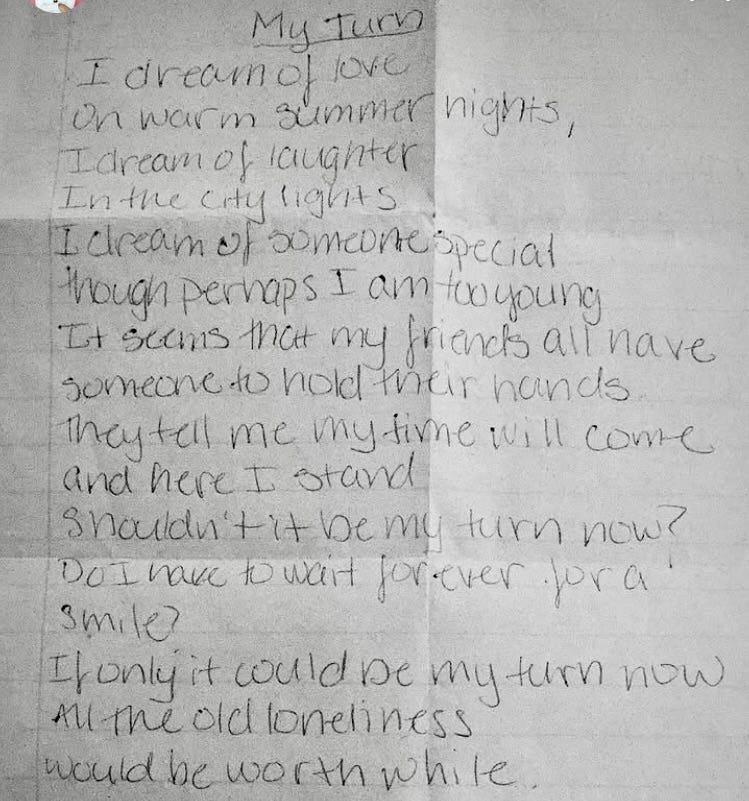 My Turn
I dream of love
On warm summer nights,
I dream of laughter
In the city lights
I dream of someone special
though perhaps I am too young
It seems that my friends all have
someone to hold their hands.
They tell me my time will come
and here I stand
Shouldn't it be my turn now?
Do I have to wait for-ever for a
smile?
If only it could be my turn now
All the old loneliness
would be worth while.